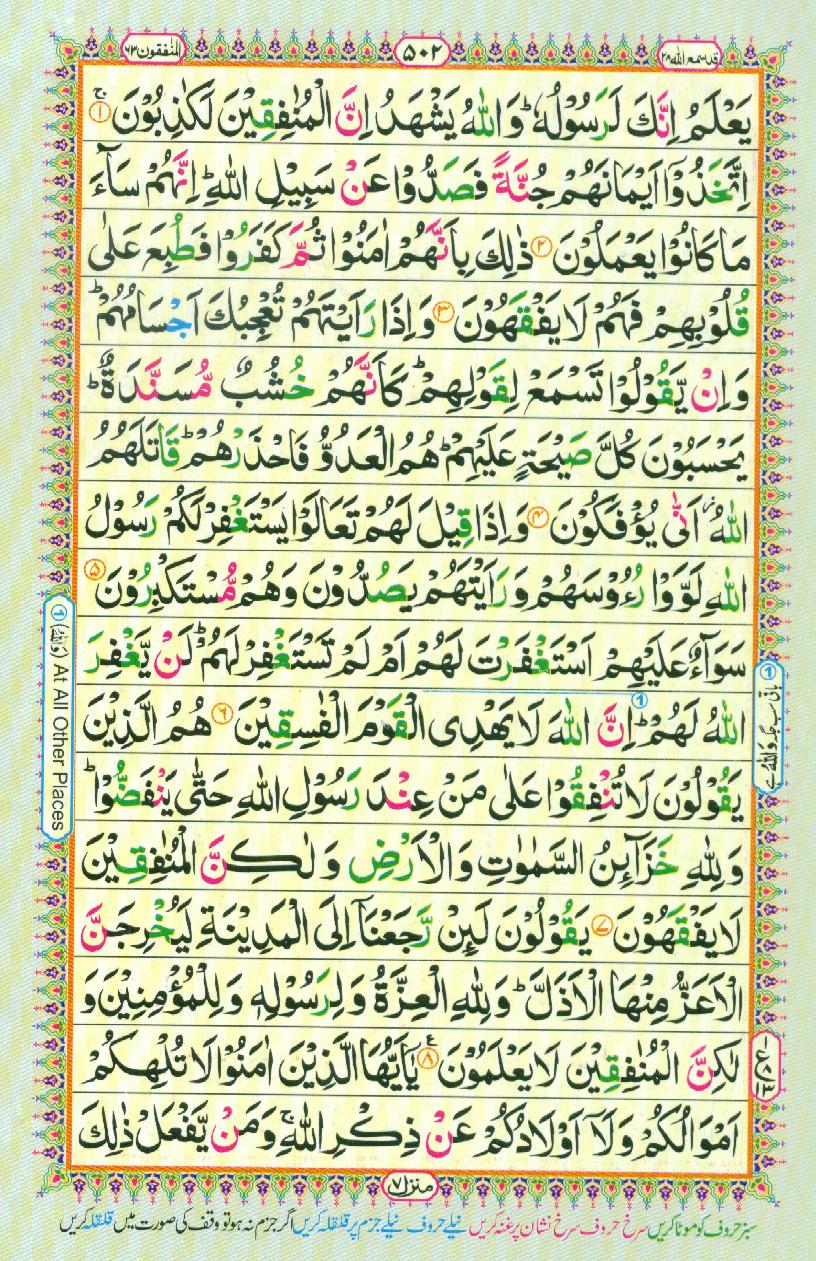 قد سمع الله ٢٨
۵۰۲
المنٰفقون ٦٣
يَعْلَمُ اِنَّكَ لَرَسُوْلُهٗ ؕ وَاللّٰهُ يَشْهَدُ اِنَّ الْمُنٰفِقِيْنَ لَكٰذِبُوْنَ ۚ ۱
اِتَّخَذُوْۤا اَيْمَانَهُمْ جُنَّةً فَصَدُّوْا عَنْ سَبِيْلِ اللّٰهِ ؕ اِنَّهُمْ سَآءَ
مَا كَانُوْا يَعْمَلُوْنَ ۲ ذٰلِكَ بِاَنَّهُمْ اٰمَنُوْا ثُمَّ كَفَرُوْا فَطُبِعَ عَلٰى
قُلُوْبِهِمْ فَهُمْ لَا يَفْقَهُوْنَ ۳ وَاِذَا رَاَيْتَهُمْ تُعْجِبُكَ اَجْسَامُهُمْ ؕ
وَاِنْ يَّقُوْلُوْا تَسْمَعْ لِقَوْلِهِمْ ؕ كَاَنَّهُمْ خُشُبٌ مُّسَنَّدَةٌ ؕ
يَحْسَبُوْنَ كُلَّ صَيْحَةٍ عَلَيْهِمْ ؕ هُمُ الْعَدُوُّ فَاحْذَرْهُمْ ؕ قَاتَلَهُمُ
اللّٰهُ ؗ اَنّٰى يُؤْفَكُوْنَ ۴ وَاِذَا قِيْلَ لَهُمْ تَعَالَوْا يَسْتَغْفِرْ لَكُمْ رَسُوْلُ
اللّٰهِ لَوَّوْا رُءُوْسَهُمْ وَرَاَيْتَهُمْ يَصُدُّوْنَ وَهُمْ مُّسْتَكْبِرُوْنَ ۵
سَوَآءٌ عَلَيْهِمْ اَسْتَغْفَرْتَ لَهُمْ اَمْ لَمْ تَسْتَغْفِرْ لَهُمْ ؕ لَنْ يَّغْفِرَ
اللّٰهُ لَهُمْ ؕ اِنَّ اللّٰهَ لَا يَهْدِى الْقَوْمَ الْفٰسِقِيْنَ ۶ هُمُ الَّذِيْنَ
يَقُوْلُوْنَ لَا تُنْفِقُوْا عَلٰى مَنْ عِنْدَ رَسُوْلِ اللّٰهِ حَتّٰى يَنْفَضُّوْا ؕ
وَلِلّٰهِ خَزَآئِنُ السَّمٰوٰتِ وَالْاَرْضِ وَلٰكِنَّ الْمُنٰفِقِيْنَ
لَا يَفْقَهُوْنَ ۷ يَقُوْلُوْنَ لَئِنْ رَّجَعْنَاۤ اِلَى الْمَدِيْنَةِ لَيُخْرِجَنَّ
الْاَعَزُّ مِنْهَا الْاَذَلَّ ؕ وَلِلّٰهِ الْعِزَّةُ وَلِرَسُوْلِهٖ وَلِلْمُؤْمِنِيْنَ وَ
لٰكِنَّ الْمُنٰفِقِيْنَ لَا يَعْلَمُوْنَ ۸ يٰۤاَيُّهَا الَّذِيْنَ اٰمَنُوْا لَا تُلْهِكُمْ
اَمْوَالُكُمْ وَلَاۤ اَوْلَادُكُمْ عَنْ ذِكْرِ اللّٰهِ ۚ وَمَنْ يَّفْعَلْ ذٰلِكَ
① (وَاللهُ) At All Other Places
منزل ۷
سبز حروف کو موٹا کریں سرخ حروف سرخ نشان پر غنہ کریں نیلے حروف نیلے جزم پر قلقلہ کریں اگر جزم نہ ہو تو وقف کی صورت میں قلقلہ کریں